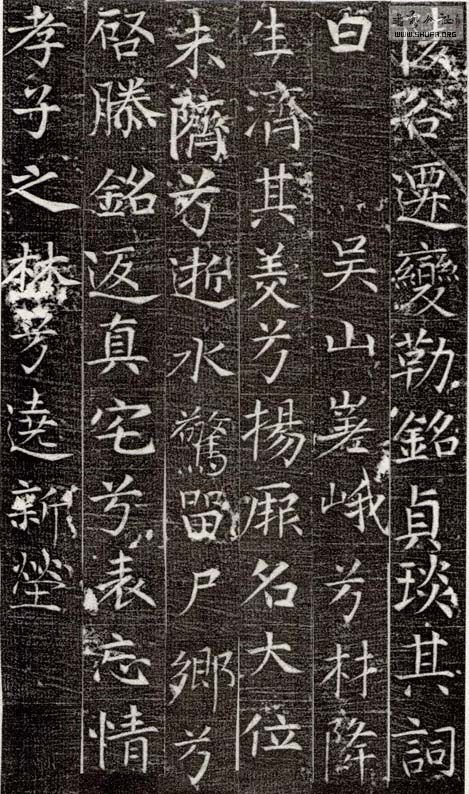 陵谷遷變勒銘貞琰其詞
曰吴山嵳峨兮材降
生濟其美兮揚厥名大位
未隮兮逝水驚留尸鄉兮
啓滕銘返真宅兮表忘情
孝子之林兮遶新塋
WWW.SHUFA.ORG